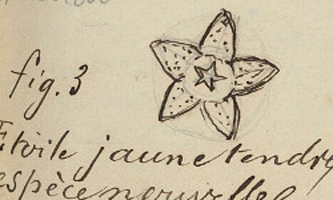 fig. 3
Etoile jaune tendre
espèce nouvelle